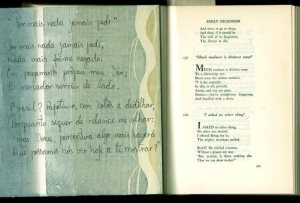 "Por mais nada jamais pedi"
Por mais nada jamais pedi,
Nada mais foi-me negado.
Em pagamento propus meu Ser;
O mercador sorriu de lado.
Brasil? Repetiu, com botão a dedilhar,
Porquanto seguer de relance me olhar:
"Mas Dona, porventura algo mais haverá
Que possamos nós lhe hoje a te mostrar?"
EMILY DICKINSON
And then, to go to sleep;
And then, if it should be
The will of its Inquisitor,
The liberty to die.
"Much madness is divinest sense"
MUCH madness is divinest sense
To a discerning eye;
Much sense the starkest madness.
'T is the majority
In this, as all, prevails.
Assent, and you are sane;
Demur,—you're straightway dangerous,
And handled with a chain.
"I asked no other thing"
I ASKED no other thing,
No other was denied.
I offered Being for it;
The mighty merchant smiled.
Brazil? He twirled a button,
Without a glance my way:
"But, madam, is there nothing else
That we can show to-day?"